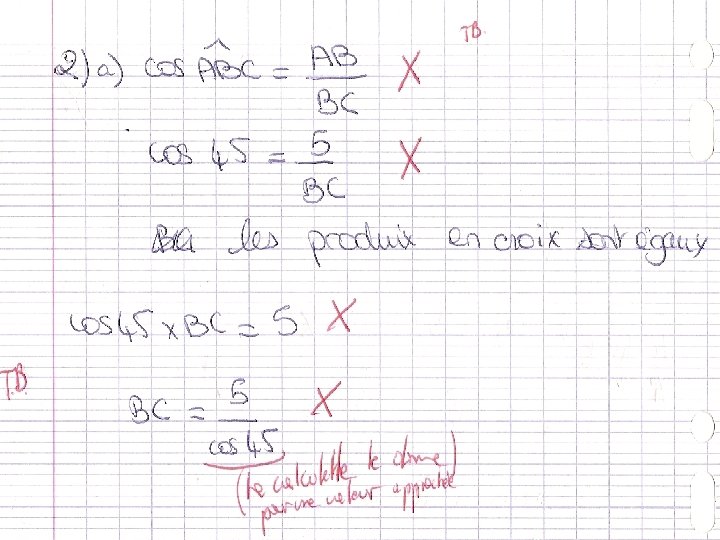 TB
2) a) cos ABC = AB / BC X
cos 45 = 5 / BC X
les produix en croix sont égaux
cos 45 x BC = 5 X
T.B.
BC = 5 / cos 45 X
(la calculette te donne)
par une valeur approchée